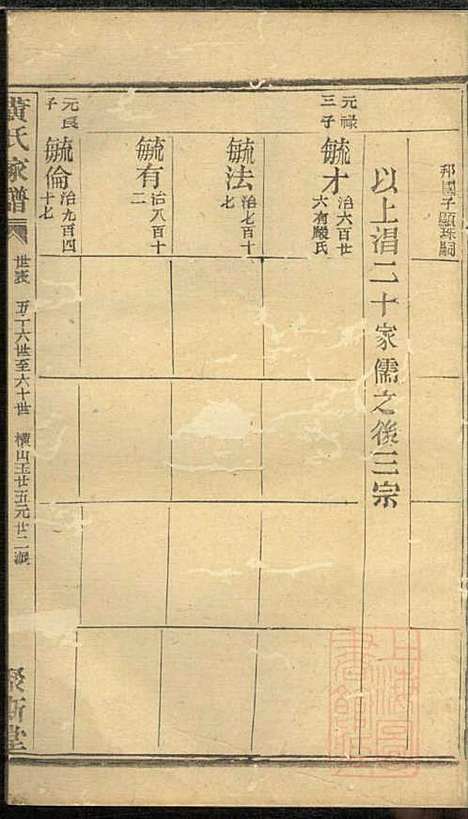 邦國子顯珠嗣
以上淐二十家儒之後三宗
元祿三子
毓才治六百世六有嚴氏
毓法治七百十七
毓有治八百十二
元良子
毓倫治九百四十七
黃氏家譜
世表 五十六世至六十世 橫山玉廿五元廿二派
聚斯堂